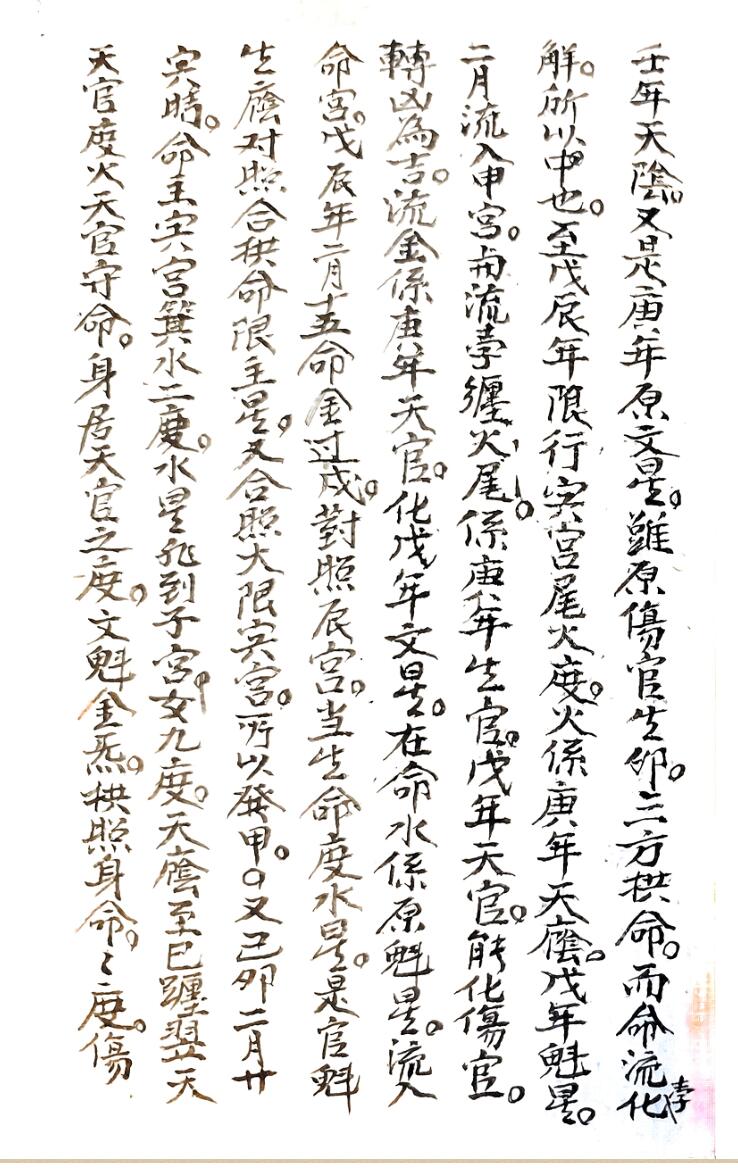 壬年天陰。又是庚年原文星。雖原傷官生卯。三方拱命。而命流孛化
解。所以中也。至戊辰年限行寅宮尾火度。火係庚年天廕。戊年魁星。
二月流入申宮。與流孛纏火尾。係庚年生官。戊年天官。能化傷官。
轉凶為吉。流金係庚年天官。化戊年文星。在命水係原魁星。流入
命宮。戊辰年二月十五命金过戌。對照辰宮。当生命度水星。是官魁
生廕对照合拱命限主星。又合照大限寅宮。所以發甲。○又己卯二月廿
寅時。命主寅宮箕水二度。水星飛到子宮。女九度。天廕至巳躔翌天
天官度火天官守命。身居天官之度。文魁金炁。拱照身命。〻度。傷